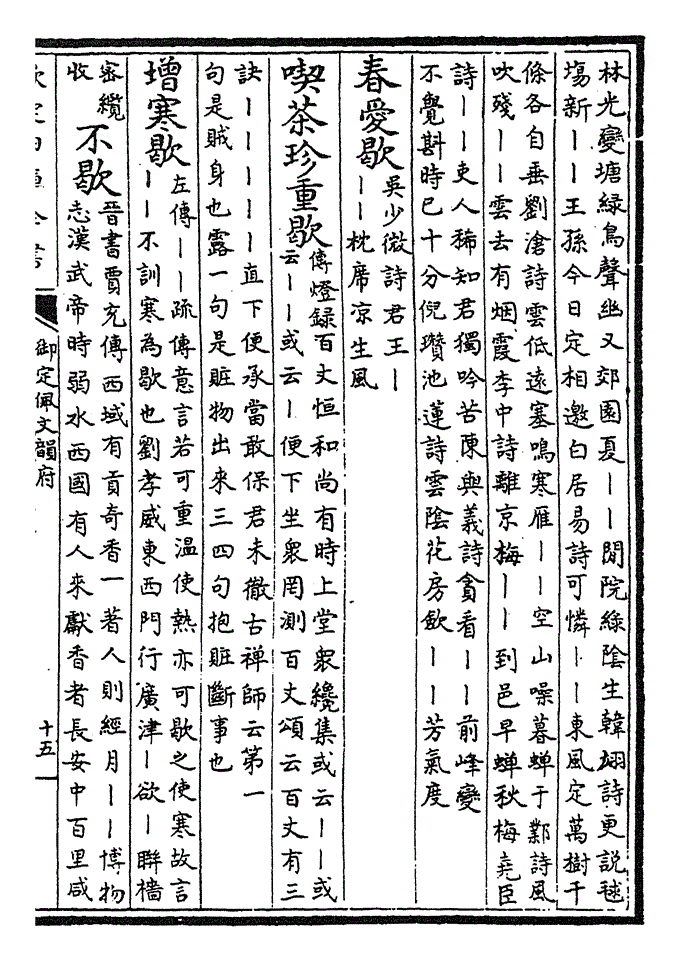 林光變塘綠鳥聲幽又郊園夏丨丨閒院綠陰生韓翃詩更説毬
場新丨丨王孫今日定相邀白居易詩可憐丨丨東風定萬樹千
條各自垂劉滄詩雲低遠塞鳴寒雁丨丨空山噪暮蟬于鄴詩風
吹殘丨丨雲去有烟霞李中詩離京梅丨丨到邑早蟬秋梅堯臣
詩丨丨吏人稀知君獨吟苦陳與義詩貪看丨丨前峰變
不覺斟時已十分倪瓚池蓮詩雲陰花房歛丨丨芳氣度
春愛歇
吳少微詩君王丨
丨丨枕席凉生風
喫茶珍重歇
傳燈録百丈恒和尚有時上堂衆纔集或云丨丨或
云丨丨或云丨便下坐衆罔測百丈頌云百丈有三
訣丨丨丨丨丨直下便承當敢保君未徹古禅師云第一
句是賊身也露一句是賍物出來三四句抱賍斷事也
增寒歇
左傳丨丨疏傳意言若可重温使熱亦可歇之使寒故言
丨丨不訓寒為歇也劉孝威東西門行廣津丨欲丨聯檣
宻纜
收
不歇
晉書賈充傳西域有貢奇香一著人則經月丨丨博物
志漢武帝時弱水西國有人來獻香者長安中百里咸
御定佩文韻府
十五